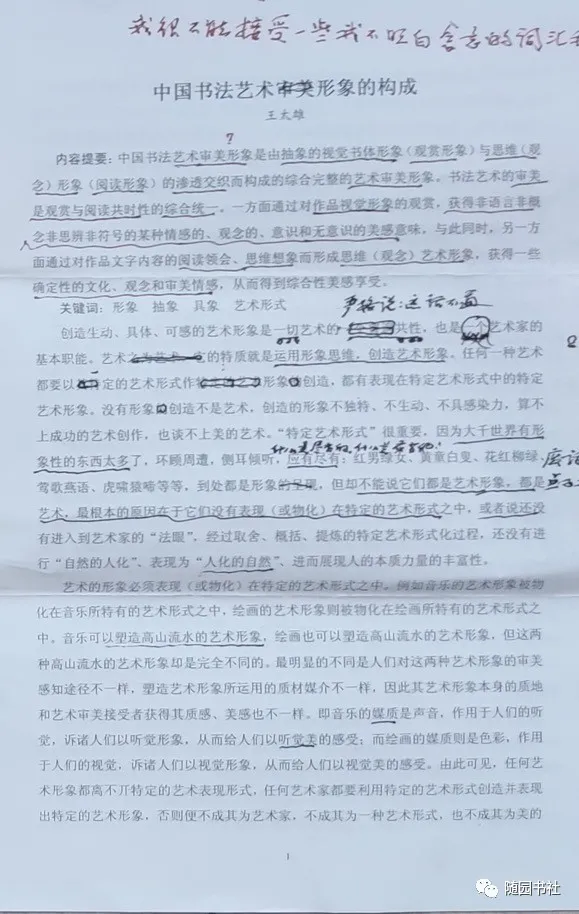 我很不能接受一些我不明白含意的词汇
中国书法艺术审美形象的构成
王太雄
?
内容提要：中国书法艺术审美形象是由抽象的视觉书体形象（观赏形象）与思维（观
念）形象（阅读形象）的渗透交织而构成的综合完整的艺术审美形象。书法艺术的审美
是观赏与阅读共时性的综合统一。一方面通过对作品视觉形象的观赏，获得非语言非概
念非思辨非符号的某种情感的、观念的、意识和无意识的美感意味，与此同时，另一方
面通过对作品文字内容的阅读领会、思维想象而形成思维（观念）艺术形象，获得一些
确定性的文化、观念和审美情感，从而得到综合性美感享受。
关键词：形象 抽象 具象 艺术形式
严格说：这话不通
创造生动、具体、可感的艺术形象是一切艺术的共性，也是一个艺术家的
基本职能。艺术的特质就是运用形象思维，创造艺术形象。任何一种艺术
2
都要以特定的艺术形式作形象创造，都有表现在特定艺术形式中的特定
艺术形象。没有形象创造不是艺术，创造的形象不独特、不生动、不具感染力，算不
上成功的艺术创作，也谈不上美的艺术。“特定艺术形式”很重要，因为大千世界有形
象性的东西太多了，环顾周遭，侧耳倾听，应有尽有：红男绿女、黄童白叟、花红柳绿、
废话
莺歌燕语、虎啸猿啼等等，到处都是形象的，但却不能说它们都是艺术形象，都是
艺术，最根本的原因在于它们没有表现（或物化）在特定的艺术形式之中，或者说还没
有进入到艺术家的“法眼”，经过取舍、概括、提炼的特定艺术形式化过程，还没有进
行“自然的人化”、表现为“人化的自然”、进而展现人的本质力量的丰富性。
艺术的形象必须表现（或物化）在特定的艺术形式之中。例如音乐的艺术形象被物
化在音乐所特有的艺术形式之中，绘画的艺术形象则被物化在绘画所特有的艺术形式之
中。音乐可以塑造高山流水的艺术形象，绘画也可以塑造高山流水的艺术形象，但这两
种高山流水的艺术形象却是完全不同的。最明显的不同是人们对这两种艺术形象的审美
感知途径不一样，塑造艺术形象所运用的质材媒介不一样，因此其艺术形象本身的质地
和艺术审美接受者获得其质感、美感也不一样。即音乐的媒质是声音，作用于人们的听
觉，诉诸人们以听觉形象，从而给人们以听觉美的感受；而绘画的媒质则是色彩，作用
于人们的视觉，诉诸人们以视觉形象，从而给人们以视觉美的感受。由此可见，任何艺
术形象都离不开特定的艺术表现形式，任何艺术家都要利用特定的艺术形式创造并表现
出特定的艺术形象，否则便不成其为艺术家，不成其为一种艺术形式，也不成其为美的
1
随园书社